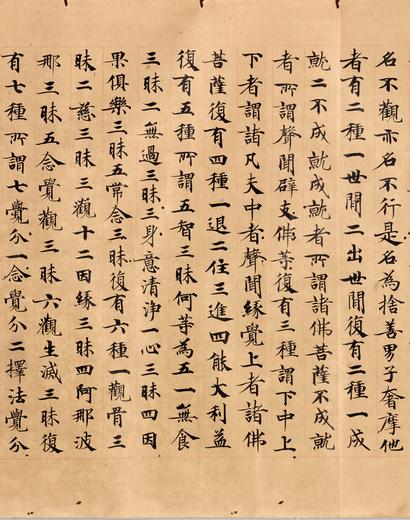 名不觀亦名不行是名為捨善男子奢摩他
者有二種一世間二出世間復有二種一成
就二不成就成就者所謂諸佛菩薩不成就
者所謂聲聞辟支佛等復有三種謂下中上
下者謂諸凡夫中者聲聞緣覺上者諸佛
菩薩復有四種一退二住三進四能大利益
復有五種所謂五智三昧何等為五一無食
三昧二無過三昧三身意清淨一心三昧四因
果俱樂三昧五常念三昧復有六種一觀骨三
昧二慈三昧三觀十二因緣三昧四阿那波
那三昧五念覺觀三昧六觀生滅三昧復
有七種所謂七覺分一念覺分二擇法覺分